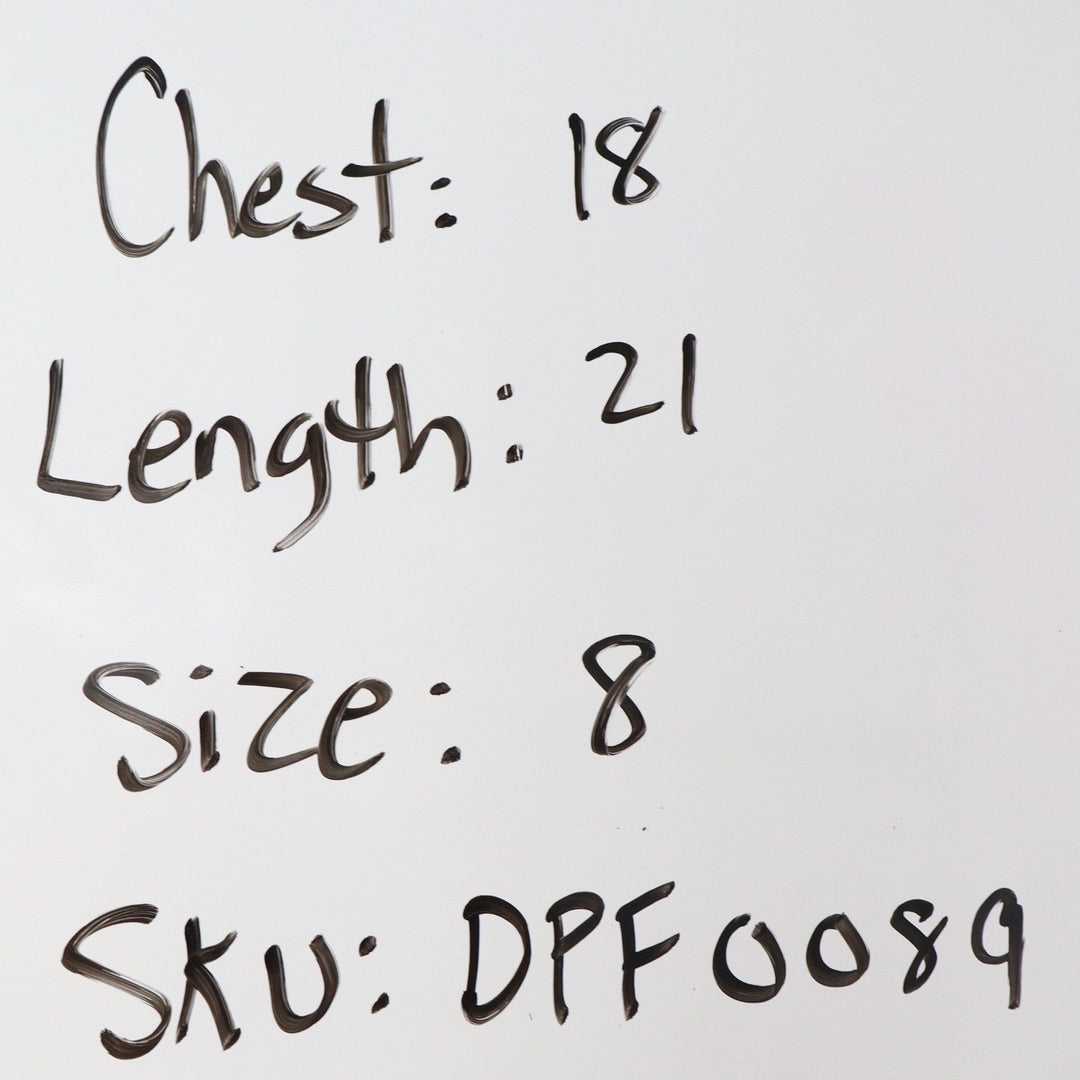 Chest: 18
Length: 21
Size: 8
Sku: DPF0089